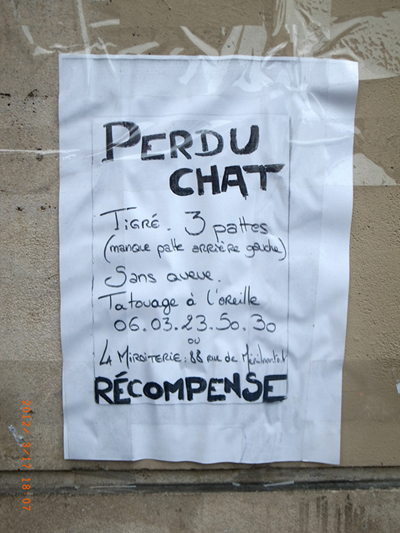 PERDU
CHAT
TIGRÉ. 3 pattes
(manque patte arrière gauche)
Sans queue.
Tatouage à l'oreille
06.03.23.50.30
ou
LA MIROITERIE : 88 rue de Ménilmontant
RÉCOMPENSE
18:07